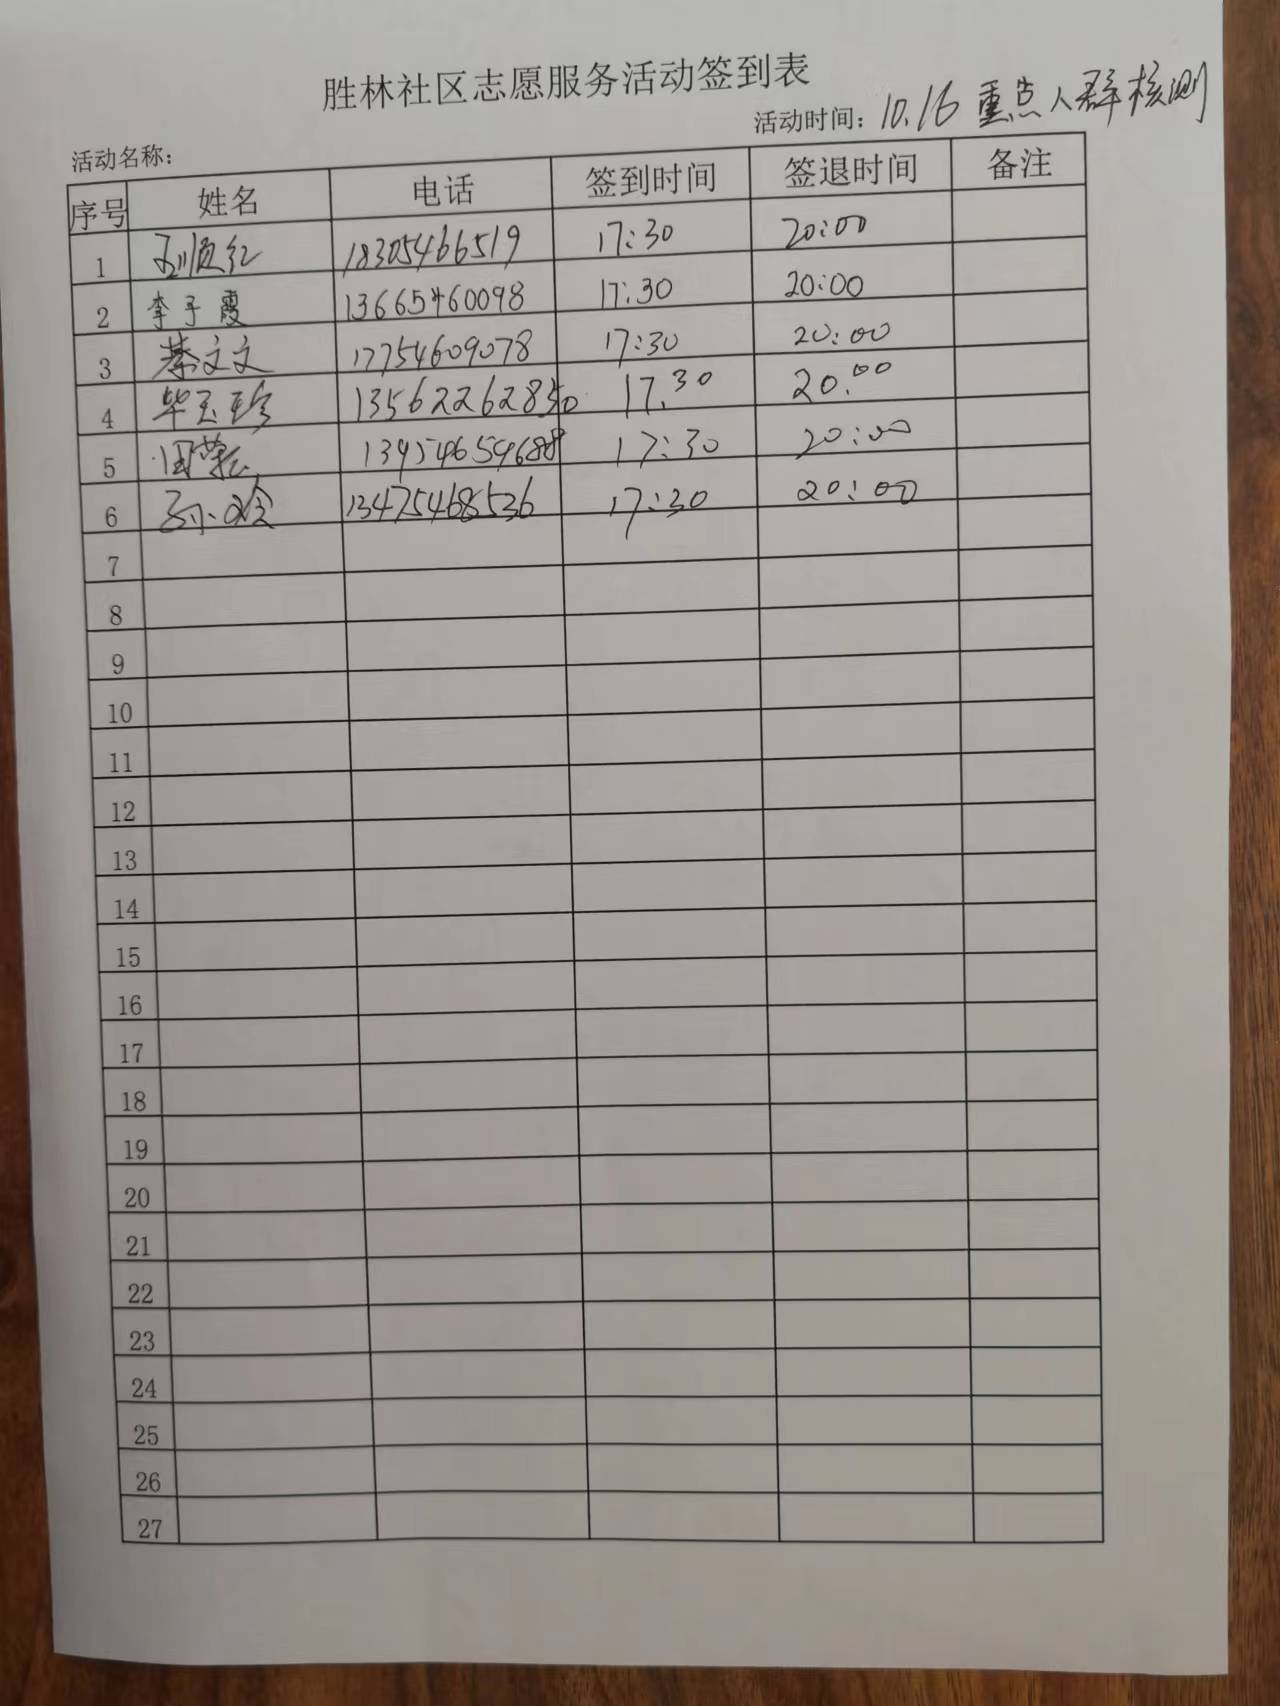 胜林社区志愿服务活动签到表
活动名称: 活动时间: 10.16 重点人群核测
序号 姓名 电话 签到时间 签退时间 备注
1 顺红 18305466519 17:30 20:00
2 李子霞 13665460098 17:30 20:00
3 蔡文文 17754609078 17:30 20:00
4 毕玉珍 17.30 20:00
5 13954654688 17:30 20:00
6 13475468536 17:30 20:00
7
8
9
10
11
12
13
14
15
16
17
18
19
20
21
22
23
24
25
26
27